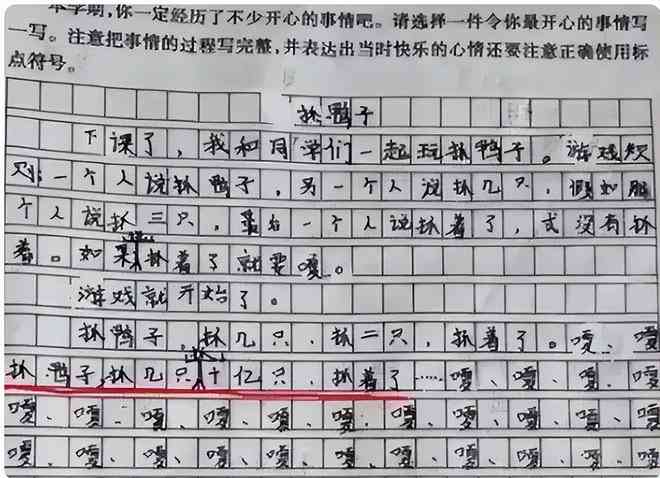 本学期,你一定经历了不少开心的事情吧。请选择一件令你最开心的事情写
一写。注意把事情的过程写完整,并表达出当时快乐的心情还要注意正确使用标
点符号。
抓鸭子
下课了,我和同学们一起玩抓鸭子。游戏规
则:一个人说抓鸭子,另一个人说抓几只,假如那
个人说抓三只,最后一个人说抓着了,或没有抓
着。如果抓着了就要嘎。
游戏就开始了。
抓鸭子、抓几只、抓二只,抓着了。嘎、嘎
抓鸭子,抓几只十亿只、抓着了……嘎、嘎、嘎、
嘎、嘎、嘎、嘎、嘎、嘎、嘎、嘎、嘎、
嘎、嘎、嘎、嘎、嘎、嘎、嘎、嘎、嘎、